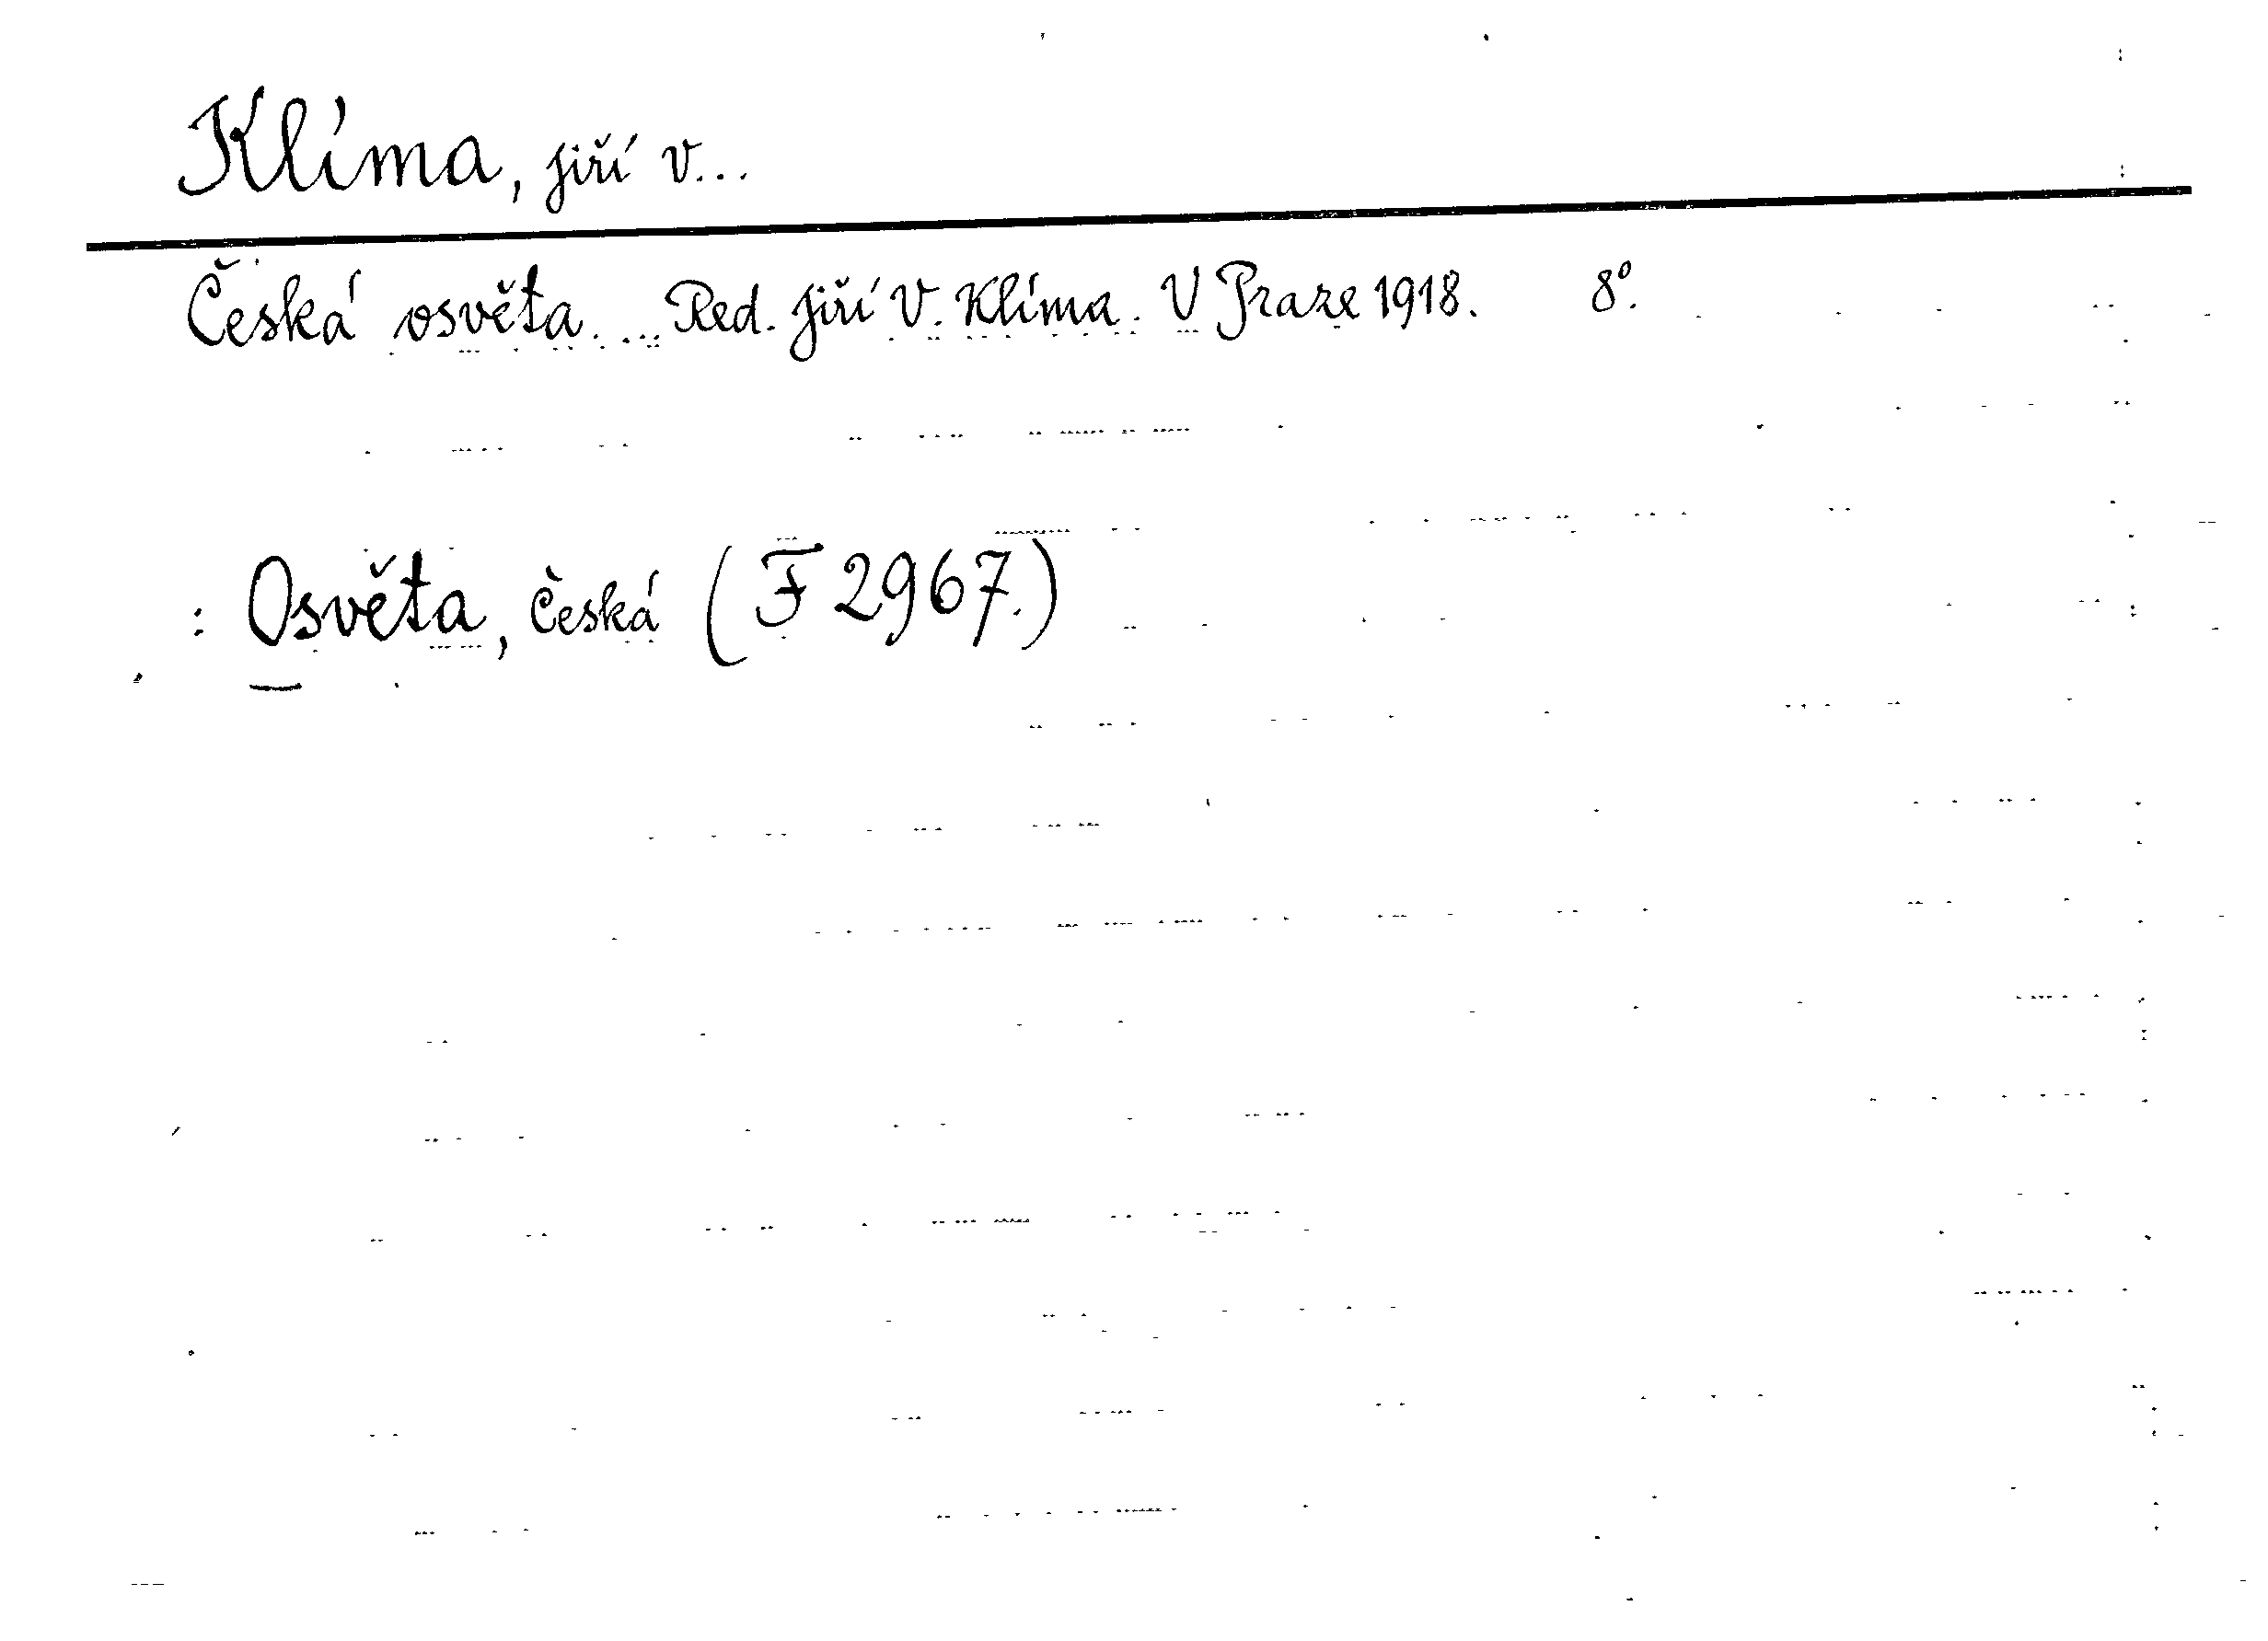 Klíma, Jiří V...
Česká osvěta.... Red. Jiří V. Klíma. V Praze 1918. 8°.
: Osvěta, česká (F 2967.)